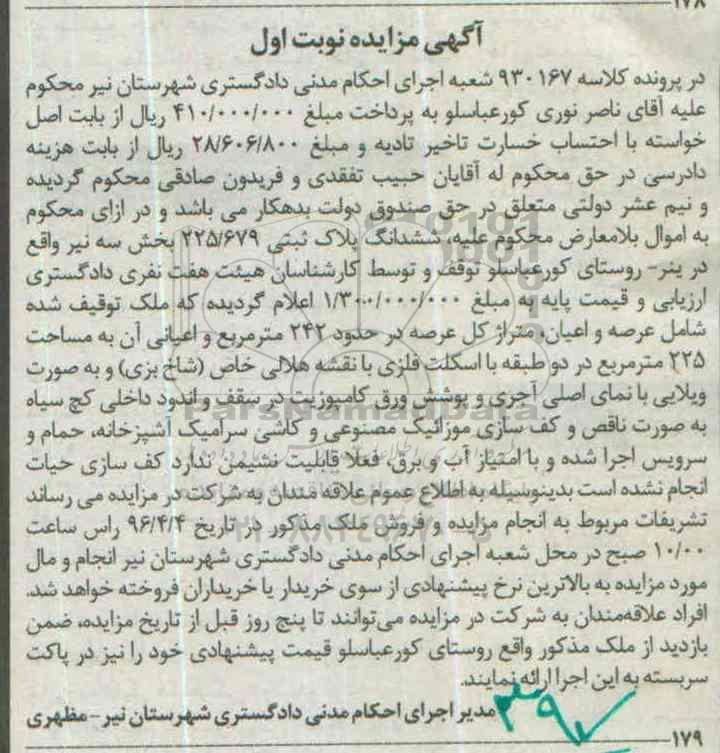 ۱۷۸
آگهی مزایده نوبت اول
در پرونده کلاسه ۹۳۰۱۶۷ شعبه اجرای احکام مدنی دادگستری شهرستان نیر محکوم
علیه آقای ناصر نوری کورعباسلو به پرداخت مبلغ ۴۱۰/۰۰۰/۰۰۰ ریال از بابت اصل
خواسته با احتساب خسارت تاخیر تادیه و مبلغ ۲۸/۶۰۶/۸۰۰ ریال از بابت هزینه
دادرسی در حق محکوم له آقایان حبیب تفقدی و فریدون صادقی محکوم گردیده
و نیم عشر دولتی متعلق در حق صندوق دولت بدهکار می باشد و در ازای محکوم
به اموال بلامعارض محکوم علیه، ششدانگ پلاک ثبتی ۲۲۵/۶۷۹ بخش سه نیر واقع
در ینر- روستای کورعباسلو توقف و توسط کارشناسان هیئت هفت نفری دادگستری
ارزیابی و قیمت پایه به مبلغ ۱/۳۰۰/۰۰۰/۰۰۰ اعلام گردیده که ملک توقیف شده
شامل عرصه و اعیان، متراژ کل عرصه در حدود ۲۴۲ مترمربع و اعیانی آن به مساحت
۲۲۵ مترمربع در دو طبقه با اسکلت فلزی با نقشه هلالی خاص (شاخ بزی) و به صورت
ویلایی با نمای اصلی آجری و پوشش ورق کامپوزیت در سقف و اندود داخلی کچ سیاه
به صورت ناقص و کف سازی موزائیک مصنوعی و کاشی سرامیک آشپزخانه، حمام و
سرویس اجرا شده و با امتیاز آب و برق، فعلا قابلیت نشیمن ندارد کف سازی حیات
انجام نشده است بدینوسیله به اطلاع عموم علاقه مندان به شرکت در مزایده می رساند
تشریفات مربوط به انجام مزایده و فروش ملک مذکور در تاریخ ۹۶/۴/۴ راس ساعت
۱۰/۰۰ صبح در محل شعبه اجرای احکام مدنی دادگستری شهرستان نیر انجام و مال
مورد مزایده به بالاترین نرخ پیشنهادی از سوی خریدار یا خریداران فروخته خواهد شد.
افراد علاقه‌مندان به شرکت در مزایده می‌توانند تا پنج روز قبل از تاریخ مزایده، ضمن
بازدید از ملک مذکور واقع روستای کورعباسلو قیمت پیشنهادی خود را نیز در پاکت
سربسته به این اجرا ارائه نمایند.
مدیر اجرای احکام مدنی دادگستری شهرستان نیر - مظهری
۱۷۹
ParsNamadData